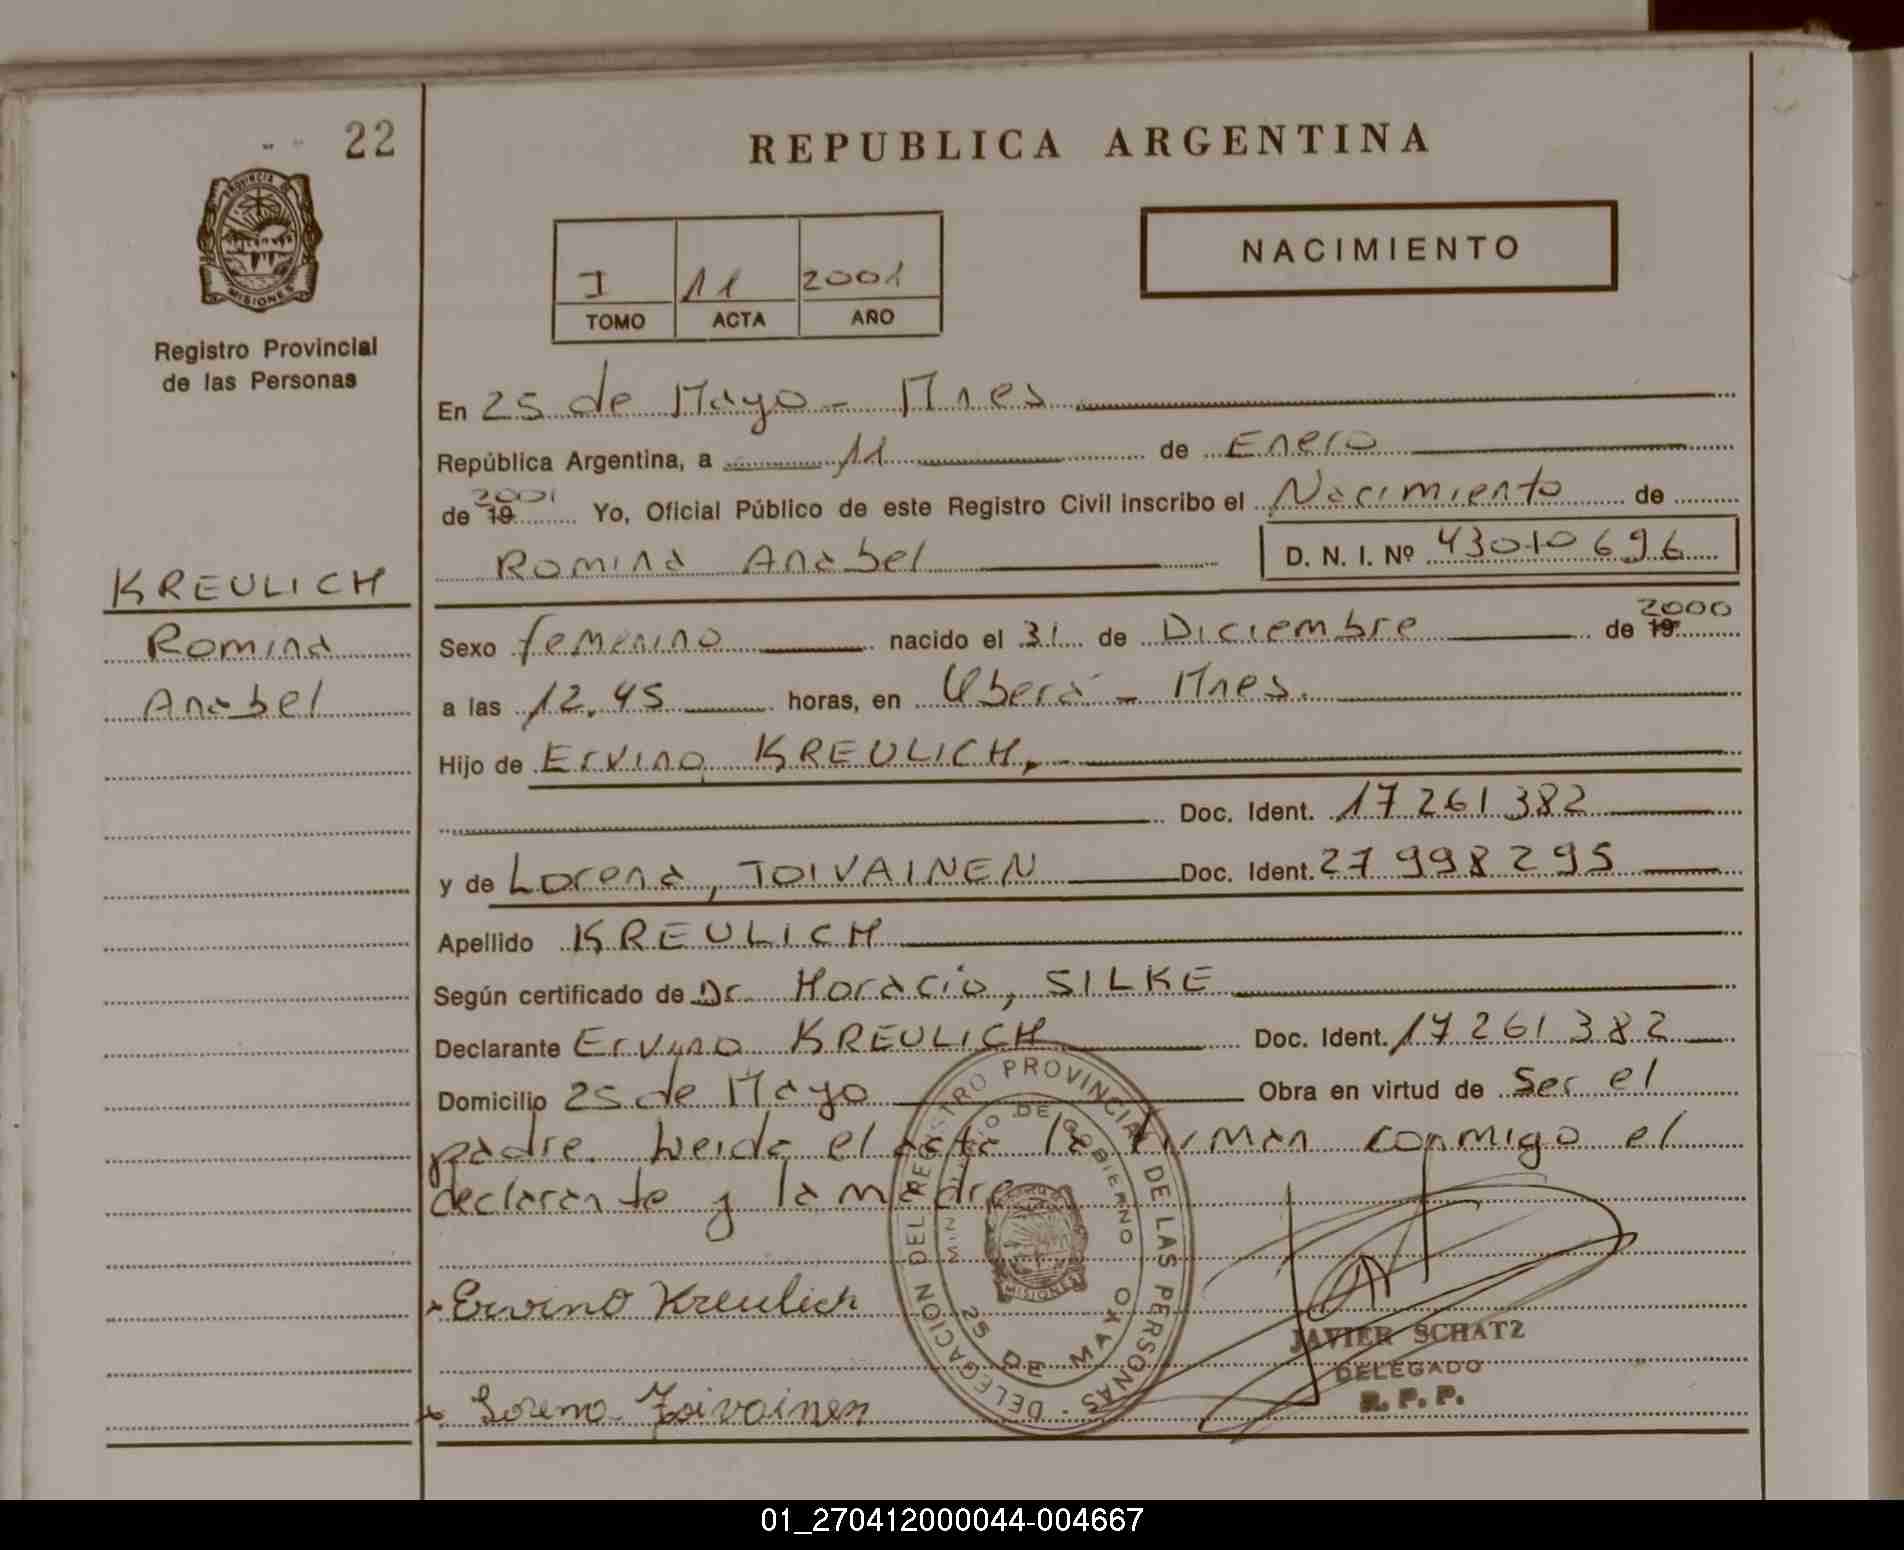 22
REPUBLICA ARGENTINA
PROVINCIA DE
MISIONES
Registro Provincial
de las Personas
NACIMIENTO
I 11 2001
TOMO ACTA AÑO
En 25 de Mayo - Mnes
República Argentina, a 11 de Enero
de 19 2001 Yo, Oficial Público de este Registro Civil inscribo el Nacimiento de
Romina Anabel D. N. I. Nº 43010696
KREULICH
Romina
Anabel
Sexo femenino nacido el 31 de Diciembre de 19 2000
a las 12.45 horas, en Oberá - Mnes.
Hijo de Ervino KREULICH,
Doc. Ident. 17261382
y de Lorena, TOIVAINEN Doc. Ident. 27998295
Apellido KREULICH
Según certificado de Dr Horacio, SILKE
Declarante Ervino KREULICH Doc. Ident. 17261382
Domicilio 25 de Mayo Obra en virtud de Ser el
padre. Leida el acta la firman conmigo el
declarante y la madre
Ervino Kreulich
Lorena Toivainen
DELEGACION DEL REGISTRO PROVINCIAL DE LAS PERSONAS -
MINISTERIO DE GOBIERNO
MISIONES
25 DE MAYO
JAVIER SCHATZ
DELEGADO
R. P. P.
01_270412000044-004667